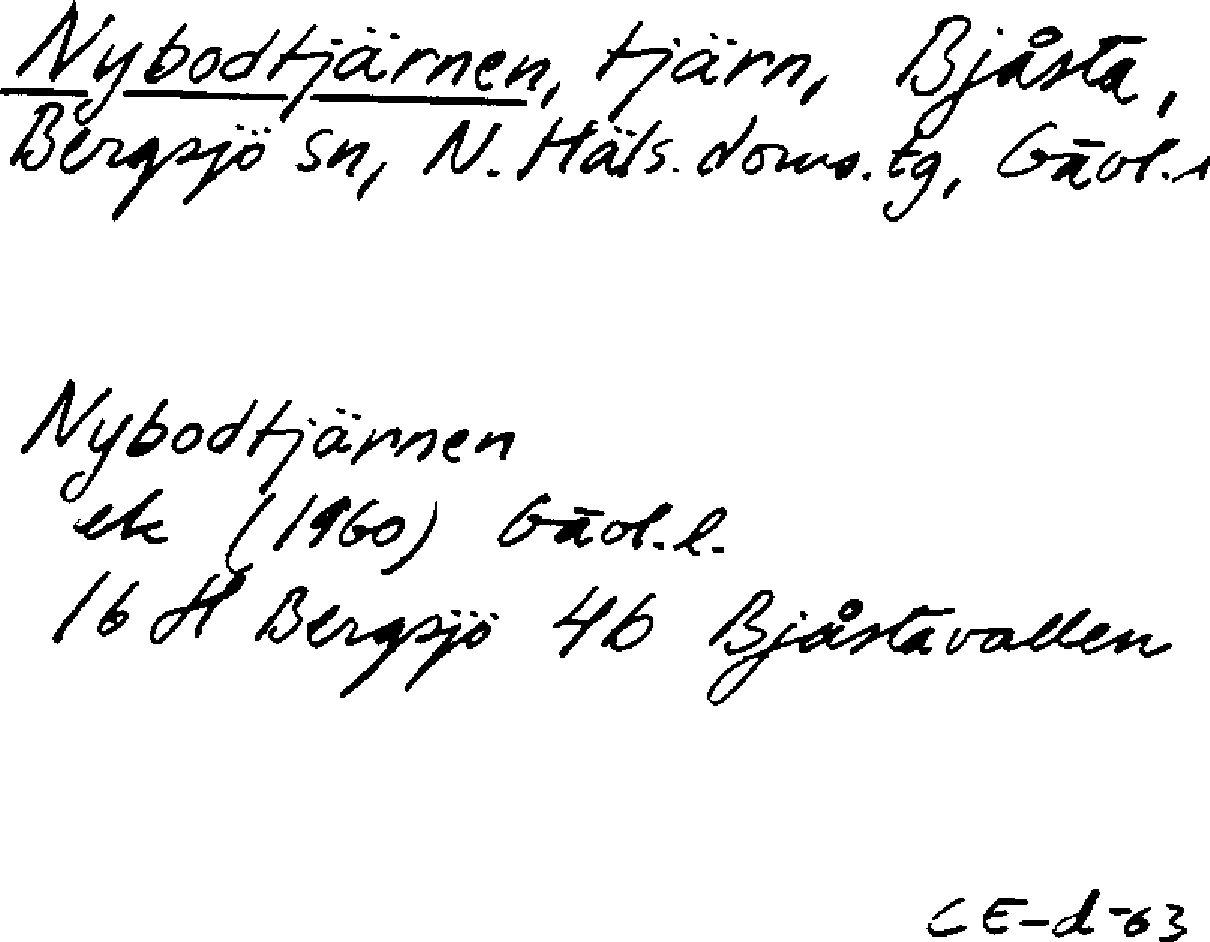 Nybodtjärnen, tjärn, Bjåsta,
Bergsjö sn, N. Häls. doms. tg, Gävl.
Nybodtjärnen
ek (1960) Gävl. l.
16 H Bergsjö 4b Bjåstavallen
CE-d-63